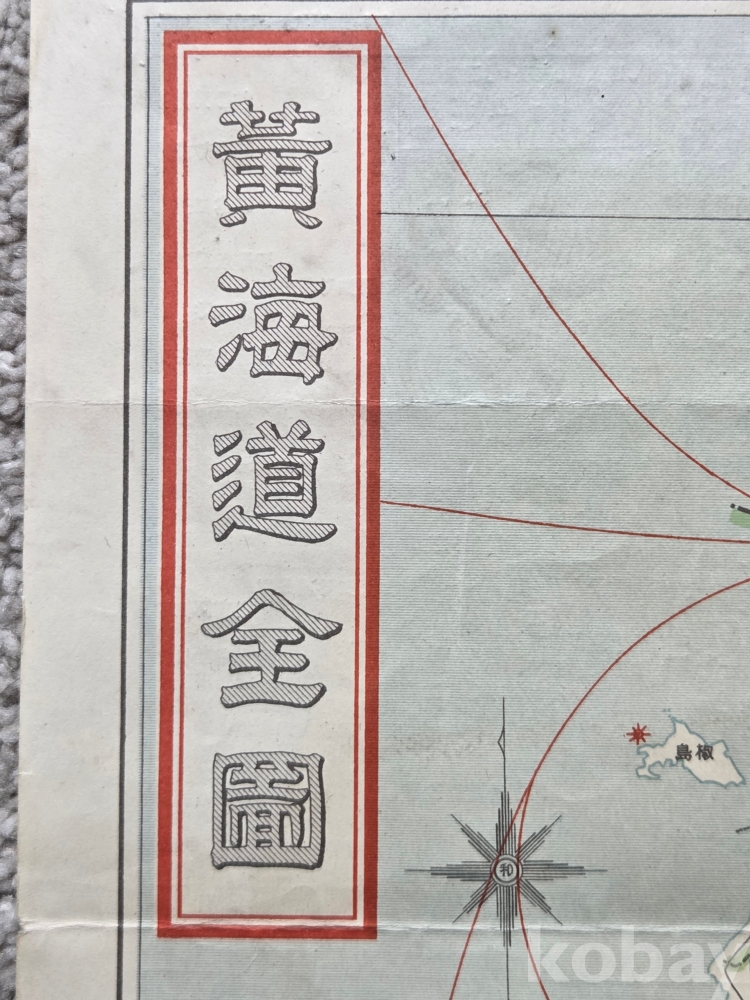 黃海道全圖
椒島
和
kobay